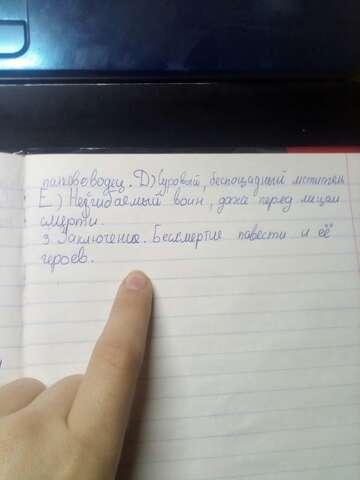 полководец. Д) Суровый, беспощадный мститель
Е) Негибаемый воин, даже перед лицом
смерти.
3. Заключение. Бессмертие повести и её
героев.